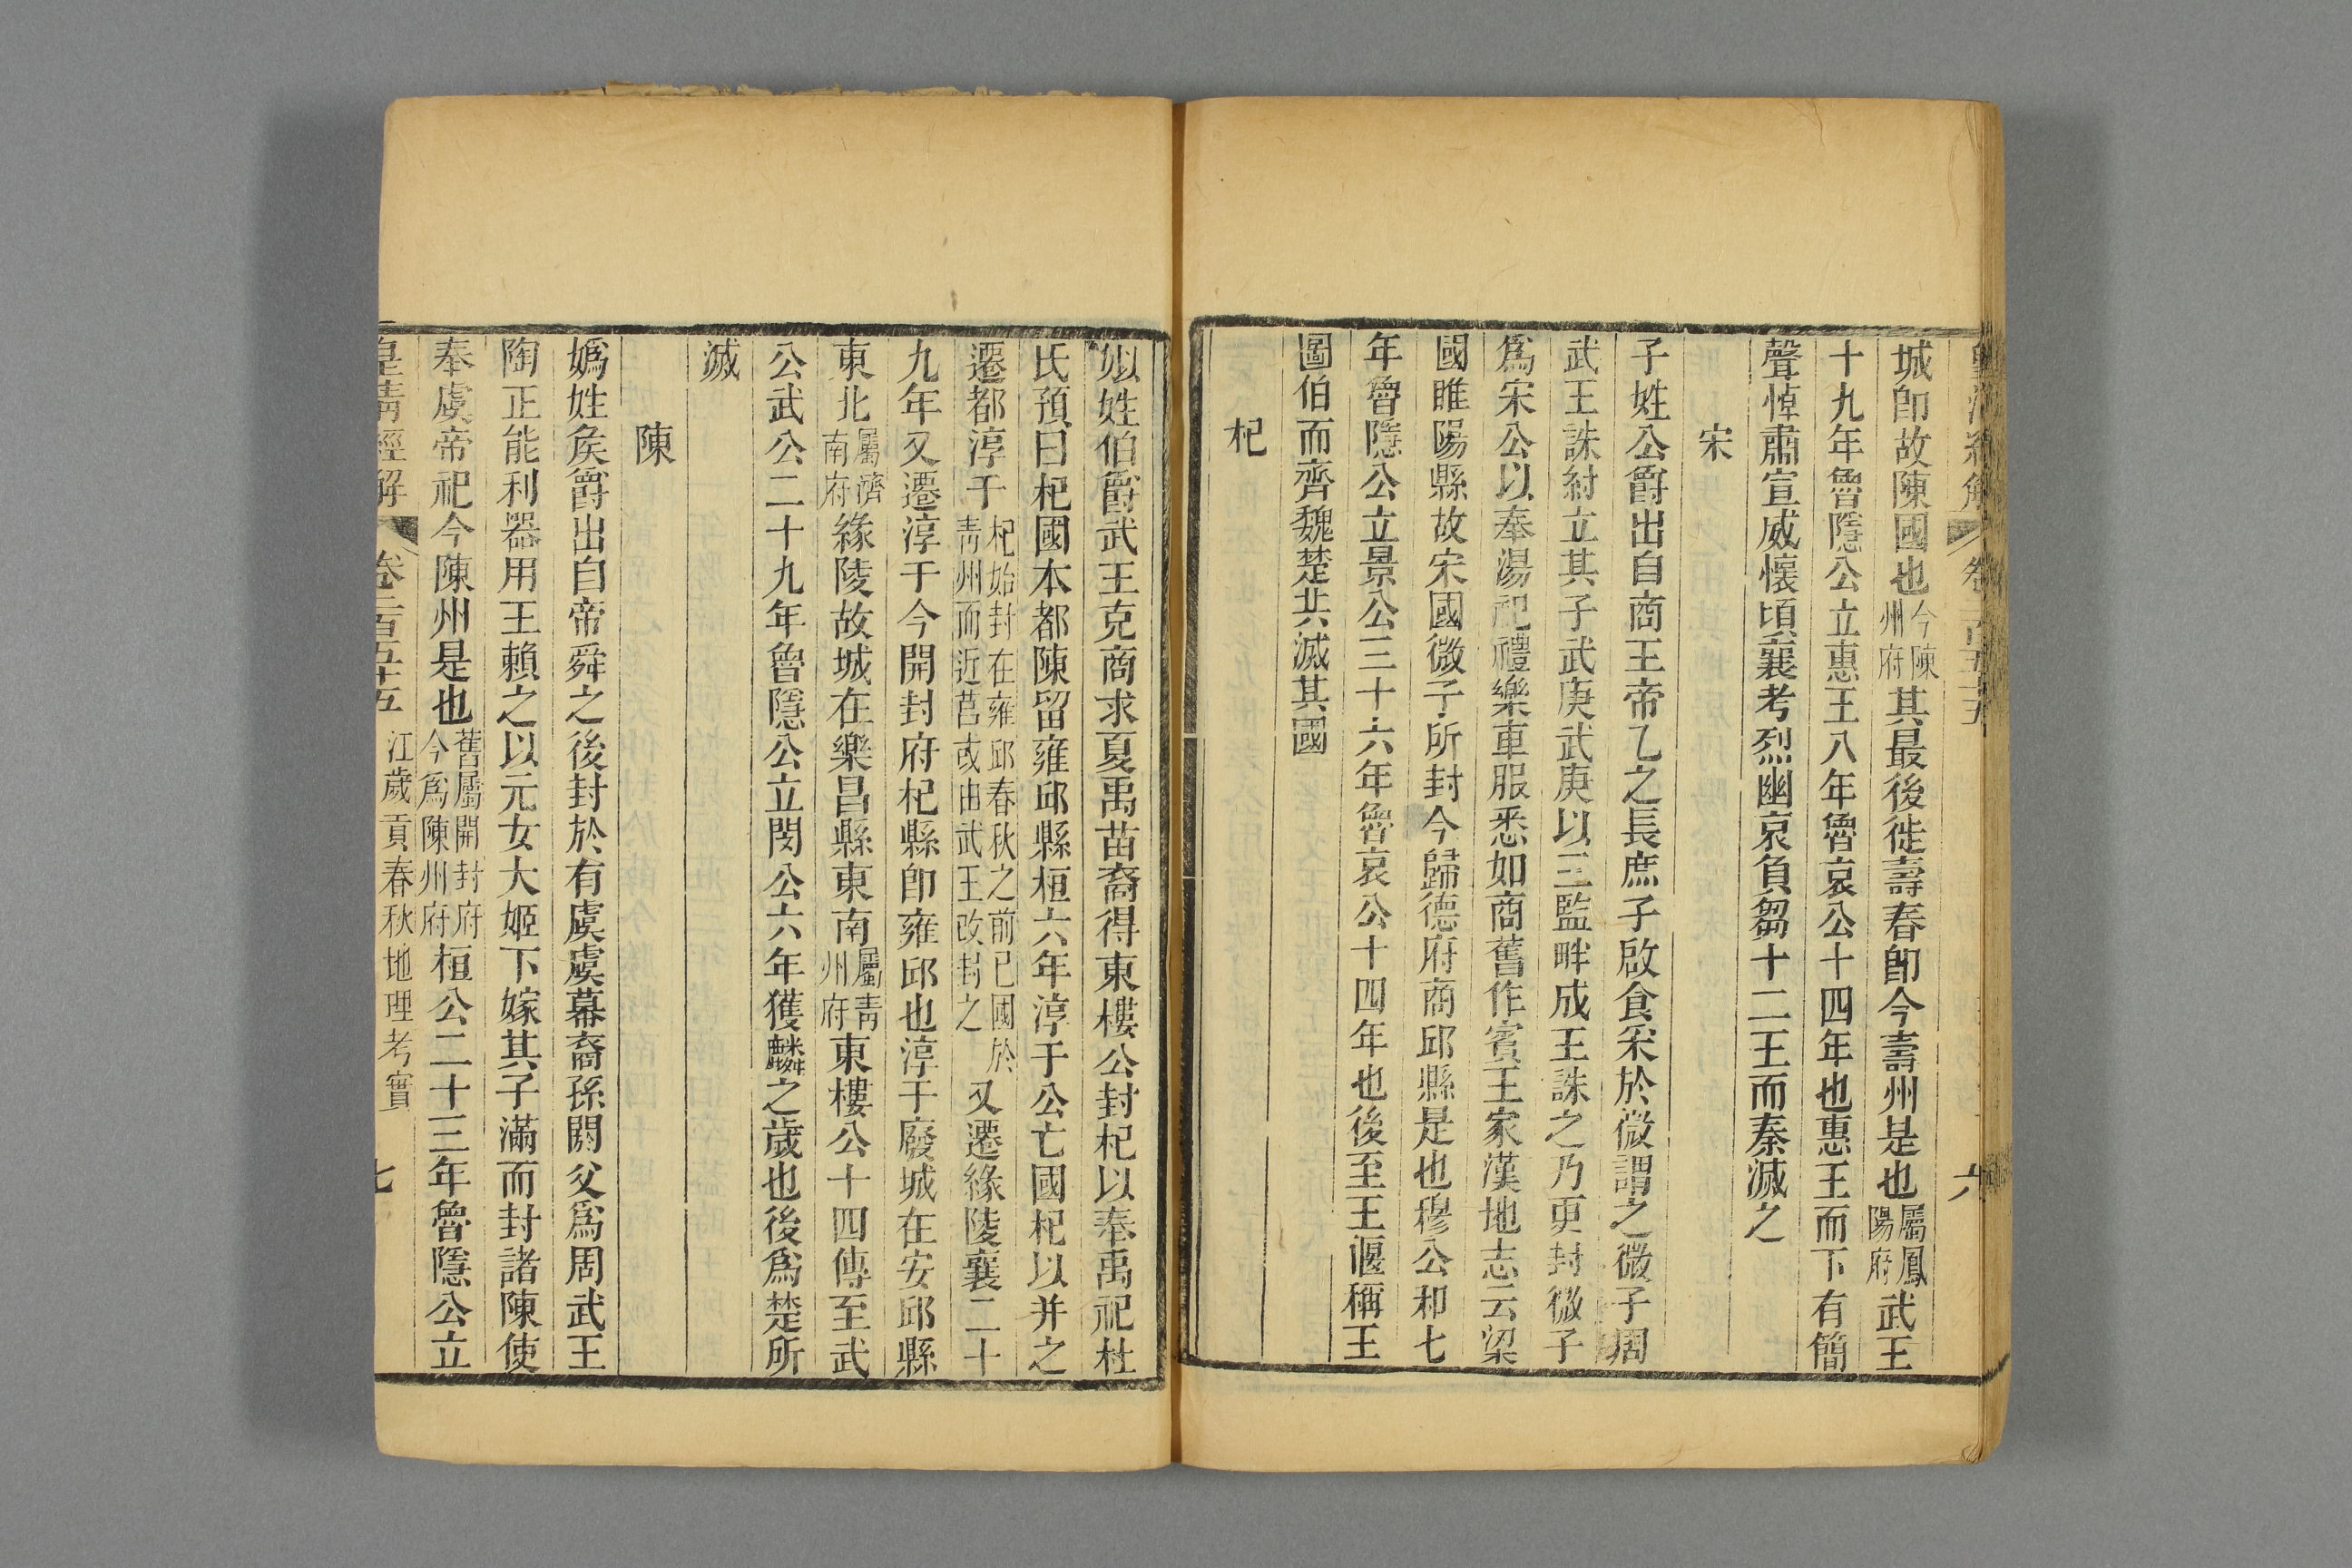 皇清經解 卷二百五十五 六
城卽故陳國也今陳州府其最後徙壽春卽今壽州是也屬鳳陽府武王
十九年魯隱公立惠王八年魯哀公十四年也惠王而下有簡
聲悼肅宣威懷頃襄考烈幽哀負芻十二王而秦滅之
宋
子姓公爵出自商王帝乙之長庶子啟食采於微謂之微子周
武王誅紂立其子武庚武庚以三監畔成王誅之乃更封微子
爲宋公以奉湯祀禮樂車服悉如商舊作賓王家漢地志云梁
國睢陽縣故宋國微子所封今歸德府商邱縣是也穆公和七
年魯隱公立景公三十六年魯哀公十四年也後至王偃稱王
圖伯而齊魏楚共滅其國
杞
姒姓伯爵武王克商求夏禹苗裔得東樓公封杞以奉禹祀杜
氏預曰杞國本都陳留雍邱縣桓六年淳于公亡國杞以并之
遷都淳于杞始封在雍邱春秋之前已國於青州而近莒或由武王改封之又遷緣陵襄二十
九年又遷淳于今開封府杞縣卽雍邱也淳于廢城在安邱縣
東北屬濟南府緣陵故城在樂昌縣東南屬青州府東樓公十四傳至武
公武公二十九年魯隱公立閔公六年獲麟之歲也後爲楚所
滅
陳
嬀姓矦爵出自帝舜之後封於有虞虞幕裔孫閼父爲周武王
陶正能利器用王賴之以元女大姬下嫁其子滿而封諸陳使
奉虞帝祀今陳州是也舊屬開封府今爲陳州府桓公二十三年魯隱公立
皇清經解 卷二百五十五 江歲貢春秋地理考實 七